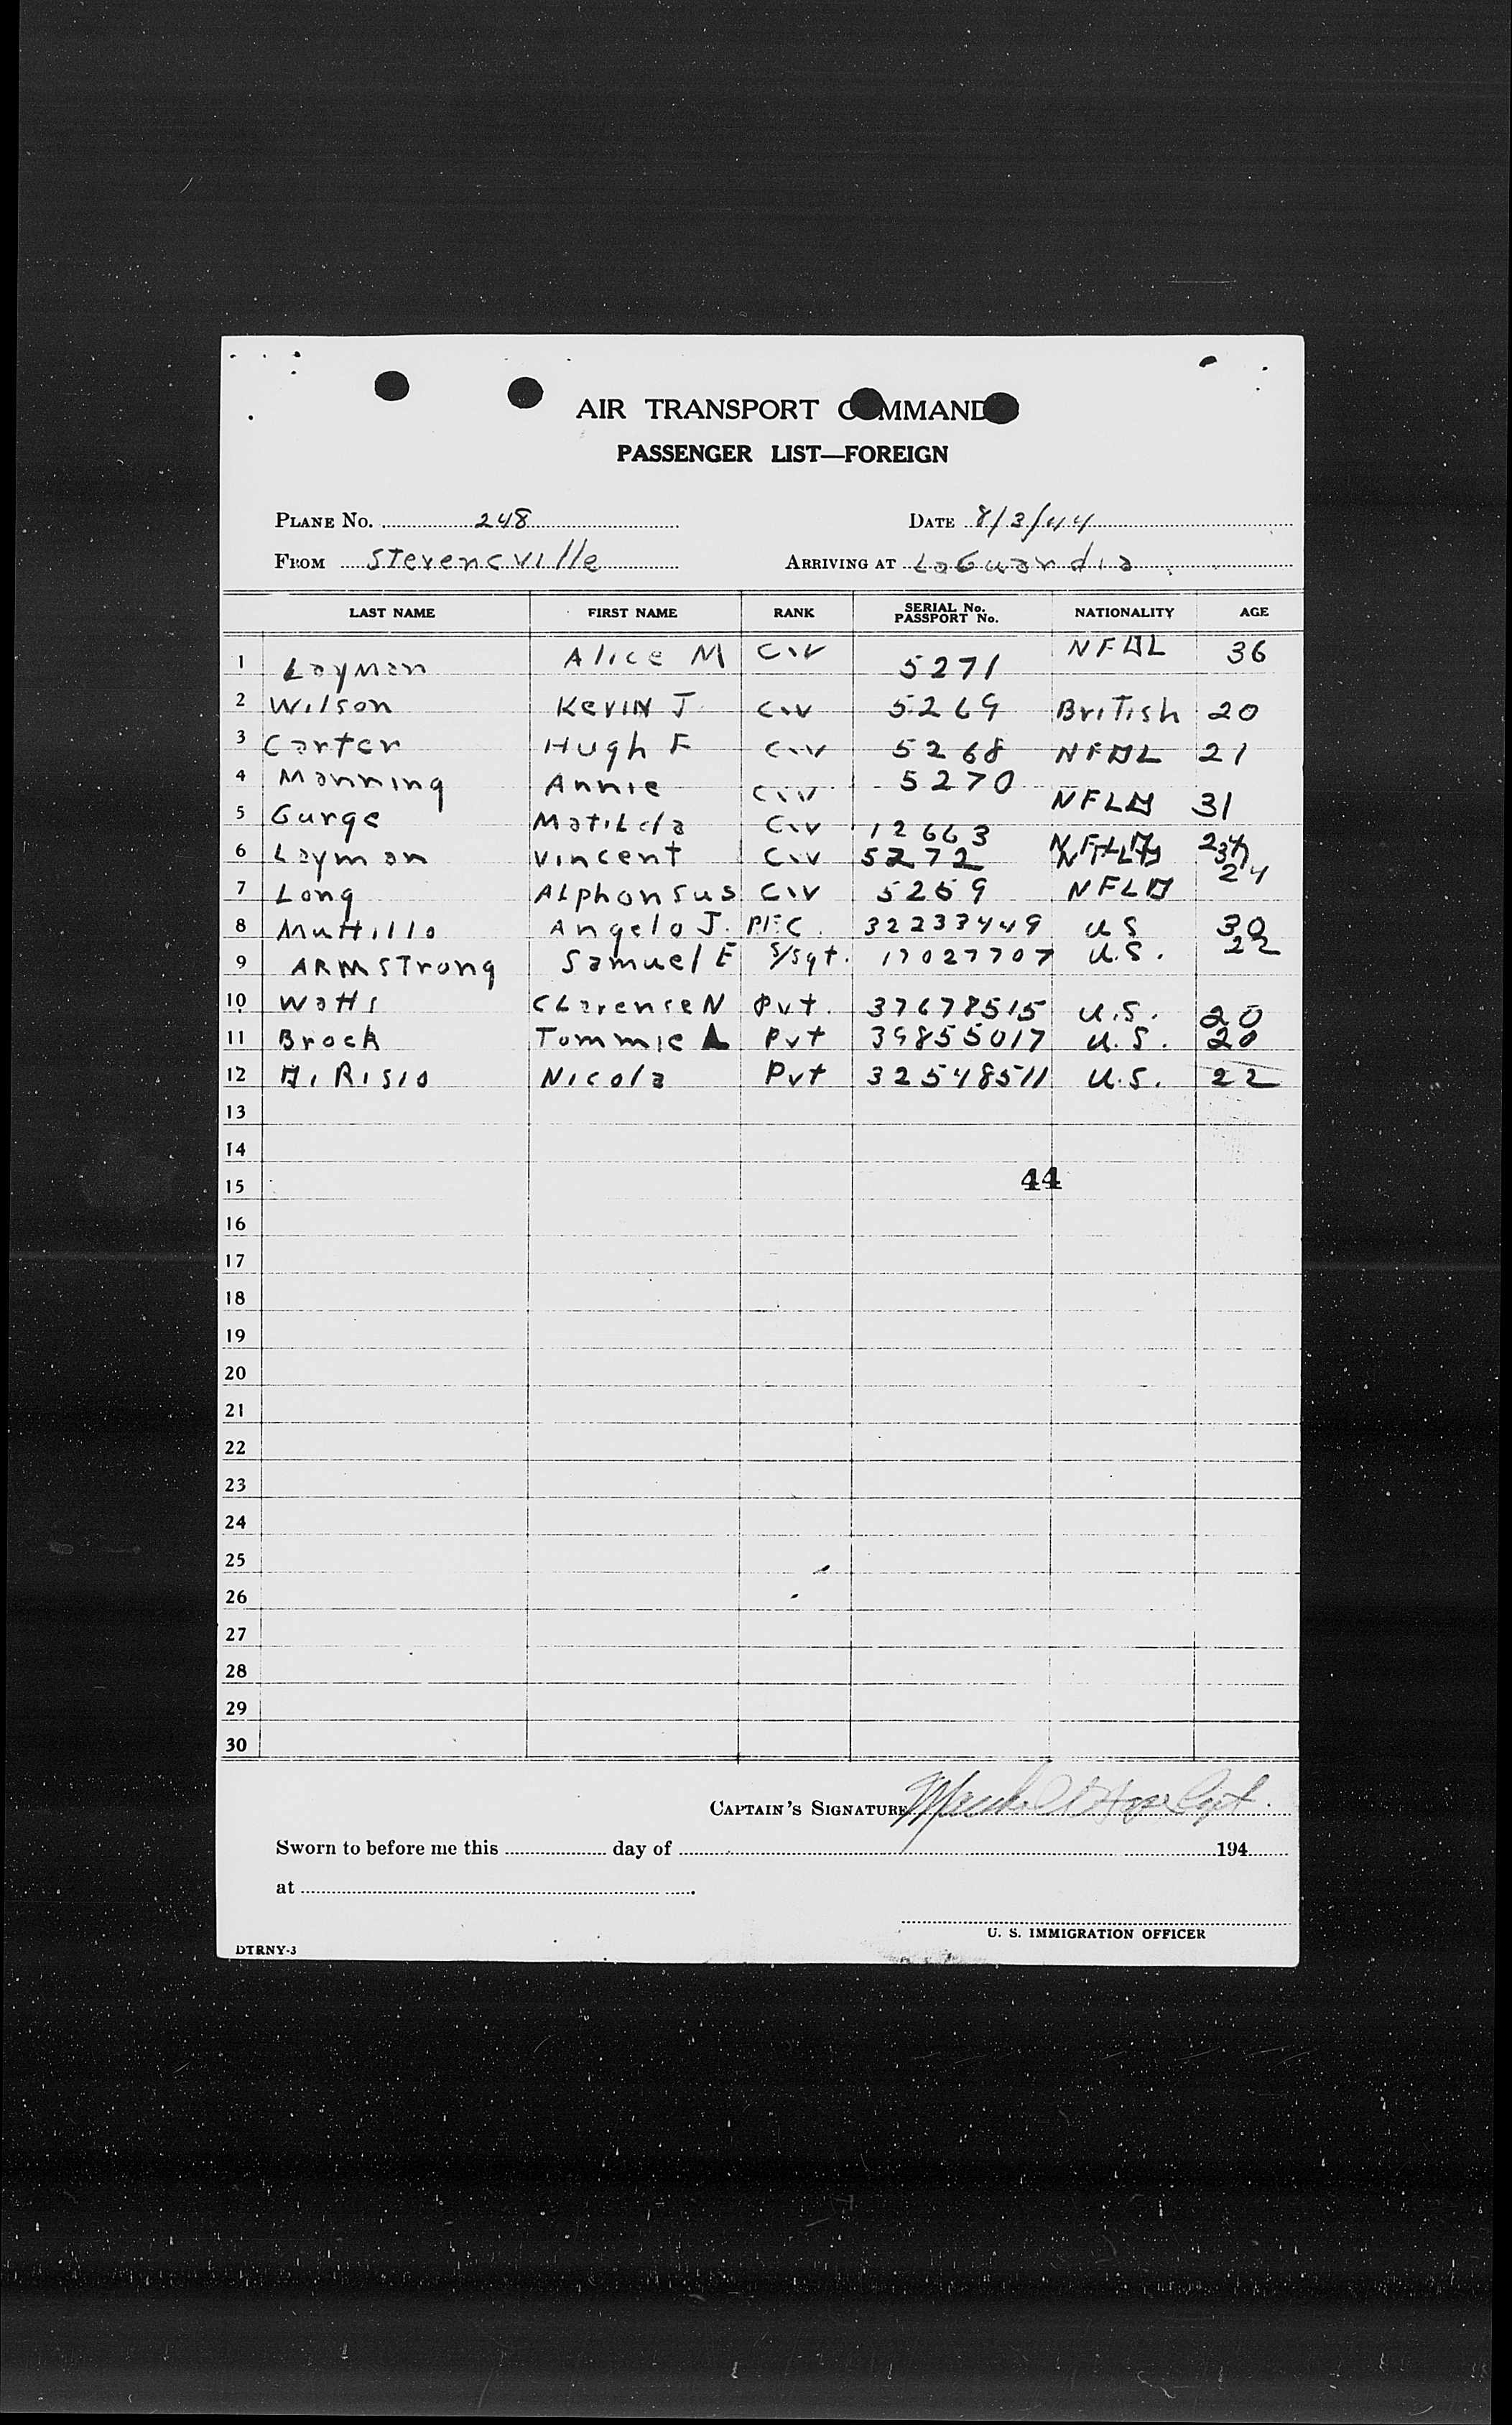 AIR TRANSPORT COMMAND
PASSENGER LIST—FOREIGN
PLANE No. 248 DATE 8/3/44
FROM Stevencville ARRIVING AT LaGuardia
LAST NAME FIRST NAME RANK SERIAL No. PASSPORT No. NATIONALITY AGE
1 Layman Alice M Civ 5271 NFDL 36
2 Wilson Kevin J Civ 5269 British 20
3 Carter Hugh F Civ 5268 NFDL 21
4 Manning Annie Civ 5270 NFLD 31
5 Gurge Matilda Civ 12663 NFLD 24
6 Layman Vincent Civ 5272 NFLD
7 Long ALphonsus Civ 5259 NFLD 24
8 Muttillo Angelo J. PFC. 32233449 US 30
9 ARMSTrong Samuel E S/Sgt. 17027707 U.S. 22
10 Watts CLarense N Pvt. 37678515 U.S. 20
11 Brock Tommie L Pvt 39855017 U.S. 20
12 DiRisio Nicola Pvt 32548511 U.S. 22
13
14
15 44
16
17
18
19
20
21
22
23
24
25
26
27
28
29
30
CAPTAIN'S SIGNATURE Capt.
Sworn to before me this day of 194
at
U. S. IMMIGRATION OFFICER
DTRNY-3